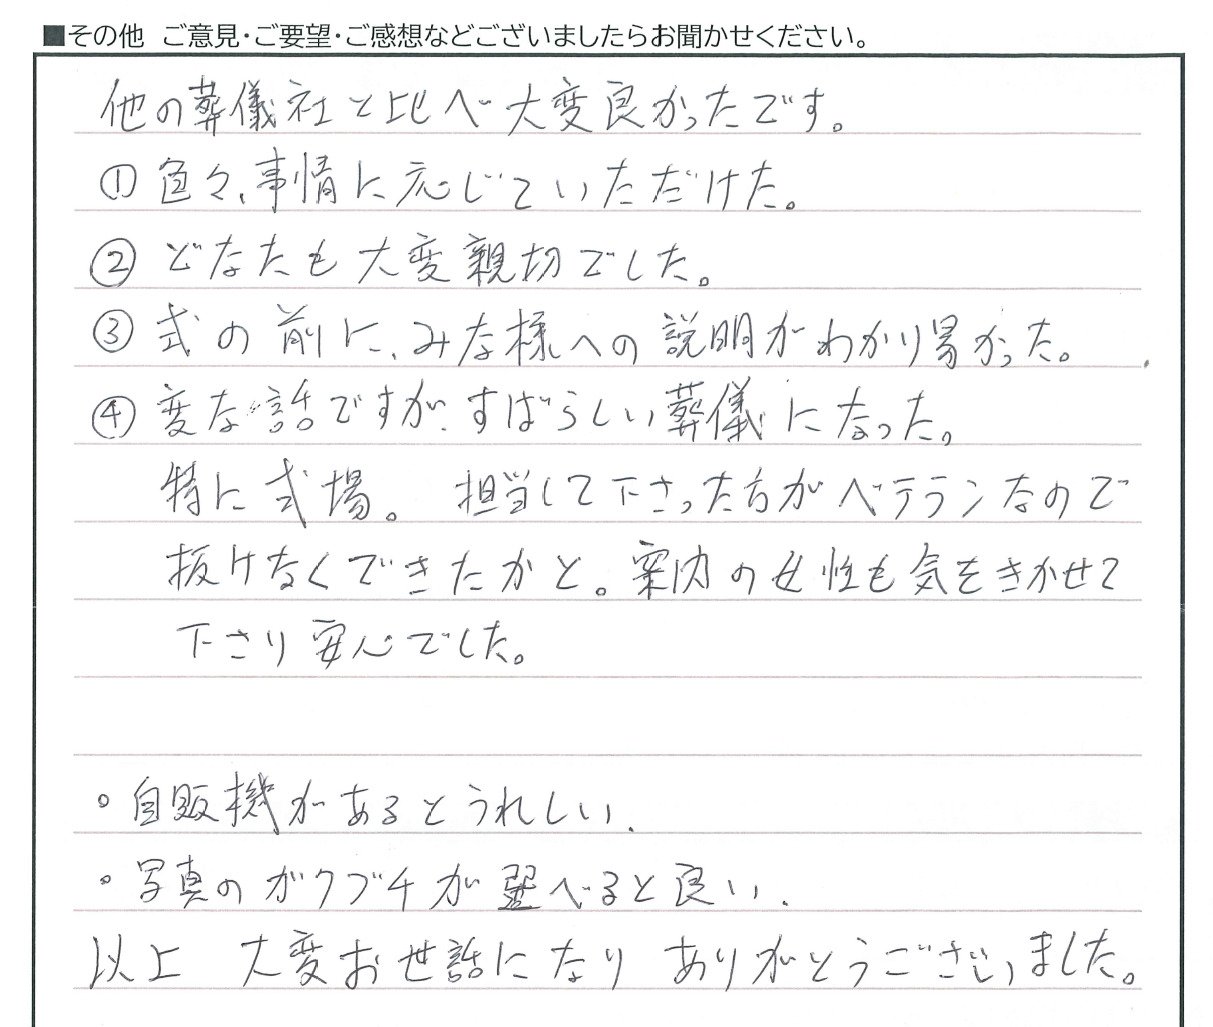 ■その他 ご意見・ご要望・ご感想などございましたらお聞かせください。
他の葬儀社と比べ大変良かったです。
①色々、事情に応じていただけた。
②どなたも大変親切でした。
③式の前に、みな様への説明がわかり易かった。
④変な話ですが、すばらしい葬儀になった。
特に式場。 担当して下さった方がベテランなので
抜けなくできたかと。案内の女性も気をきかせて
下さり安心でした。
。自販機があるとうれしい、
。写真のガクブチが選べると良い、
以上 大変お世話になり ありがとうございました。